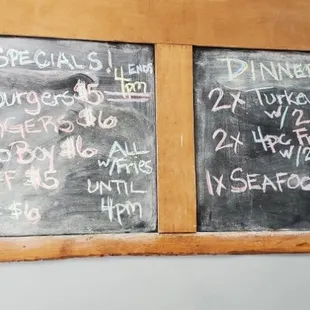 SPECIALS! ENDS
4pm
urgers $5
GERS $6
Boy $6 ALL
w/ Fries
F $5 UNTIL
$6 4pm
DINNE
2x Turke
w/ 2
2x 4pc F
w/ 2
1x SEAFO